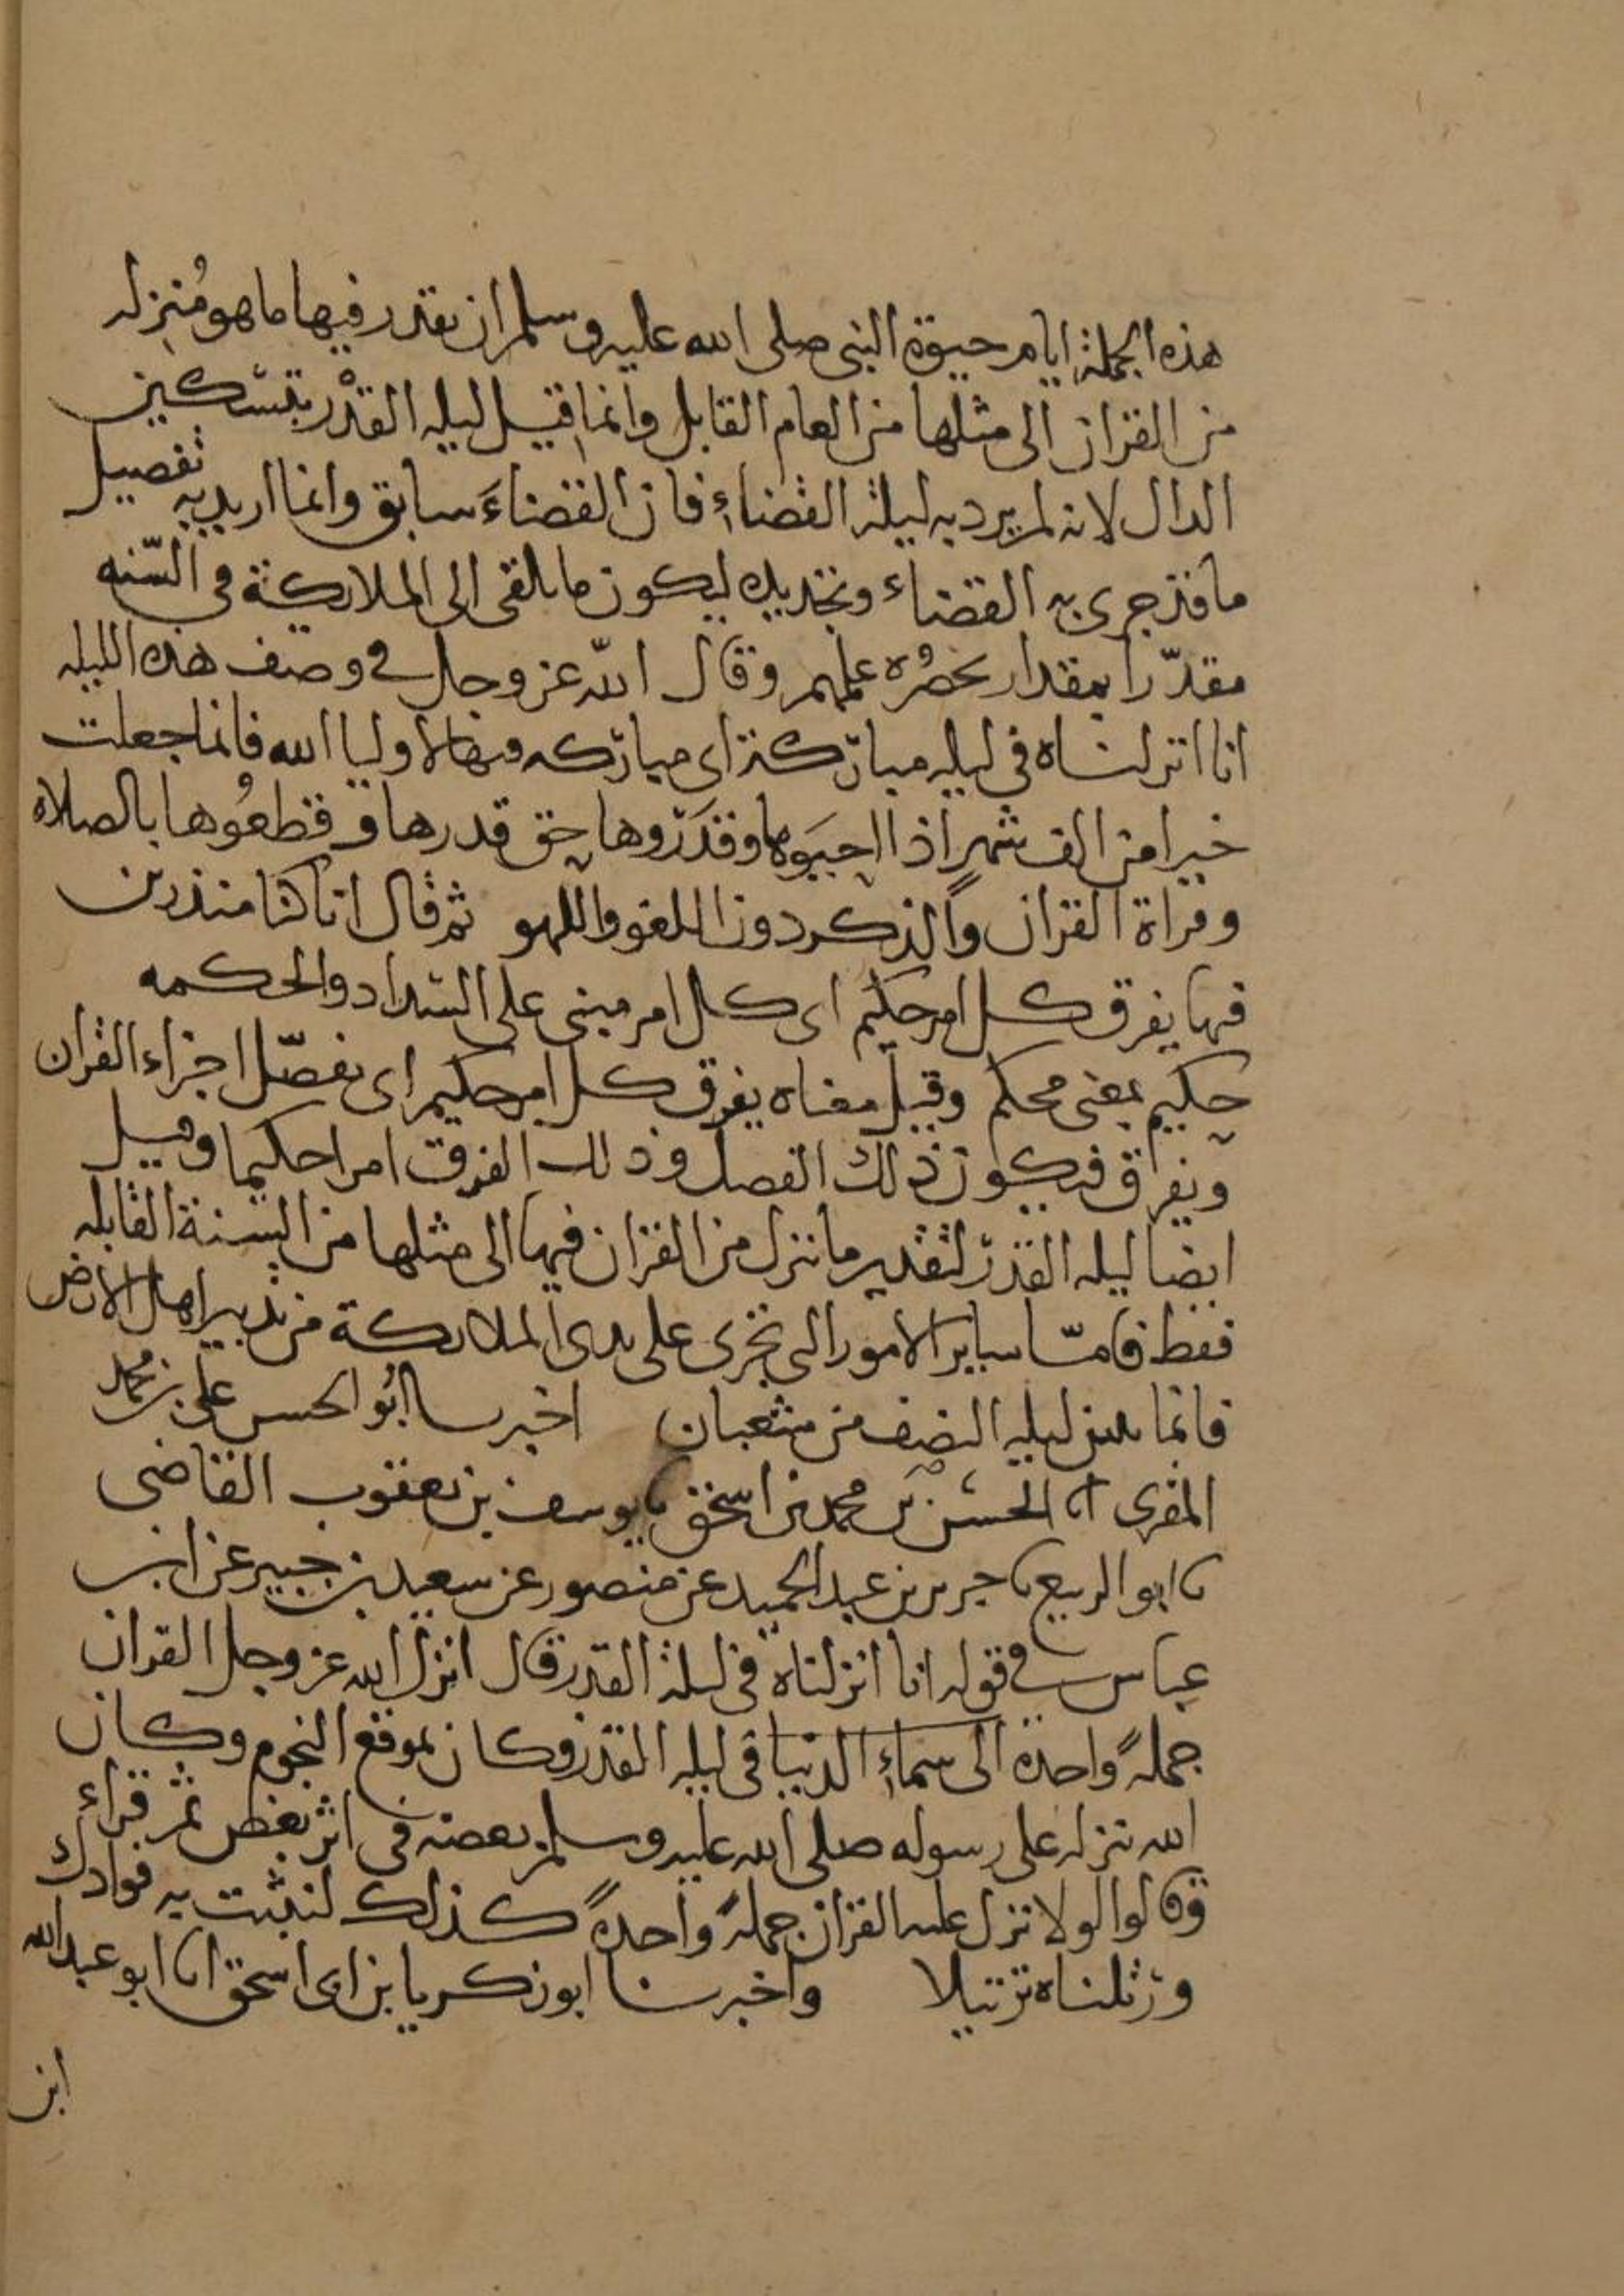 هذه الجملة ايام حيوة النبى صلى الله عليه وسلم ان يقدر فيها ما هو مُنزله
من القران الى مثلها من العام القابل وانما قيل ليله القدْر بتسكين
الدال لانه لم يرد به ليلة القضاءِ فان القضاءَ سابق وانما اريد به تفصيل
ما قد جرى به القضاء وتحديده ليكون ما يلقى الى الملايكة فى السّنه
مقدّرا بمقدار يحصُره علمهم وقال الله عز وجل فى وصف هذه الليله
انا انزلناه فى ليله مباركة اى مباركه فيها لاوليا الله فانما جعلت
خيرا من الف شهر اذا احيَوها وقدَرُوها حق قدرها وقطعُوها بالصلاه
وقراة القران والذكر دون اللغو واللهو ثم قال انا كنا منذرين
فيها يفرق كل امر حكيم اى كل امر مبنى على السداد والحكمه
حكيم بمعنى محكم وقيل معناه يفرق كل امر حكيم اى يفصّل اجزاء القران
ويفراق فيكون ذلك الفصل وذلك الفرق امرا حكيما وقيل
ايضا ليله القدر لتقدير ما ننزل من القران فيها الى مثلها من السنة القابله
فقط فامّا ساير الامور التى تجرى على يدى الملايكة من تدبير اهل الارض
فانما يبين ليله النصف من شعبان اخبرنا ابُو الحسن على بن محمد
المقرى انا الحسن بن محمد بن اسحق نا يوسف بن يعقوب القاضى
نا ابو الربيع نا جرير بن عبد الحميد عن منصور عن سعيد بن جبير عن ابن
عباس فى قوله انا انزلناه فى ليلة القدر قال انزل الله عز وجل القران
جملهً واحدة الى سماءِ الدنيا فى ليله القدر وكان بموقع النجوم وكان
الله ينزله على رسوله صلى الله عليه وسلم بعضه فى اثر بعض ثم قراء
وقالوا لولا نزل عليه القران جملهً واحدهً كذلك لنثبت به فوادك
ورتلناه ترتيلا واخبرنا ابو زكريا بن ابى اسحق انا ابو عبد الله
ابن